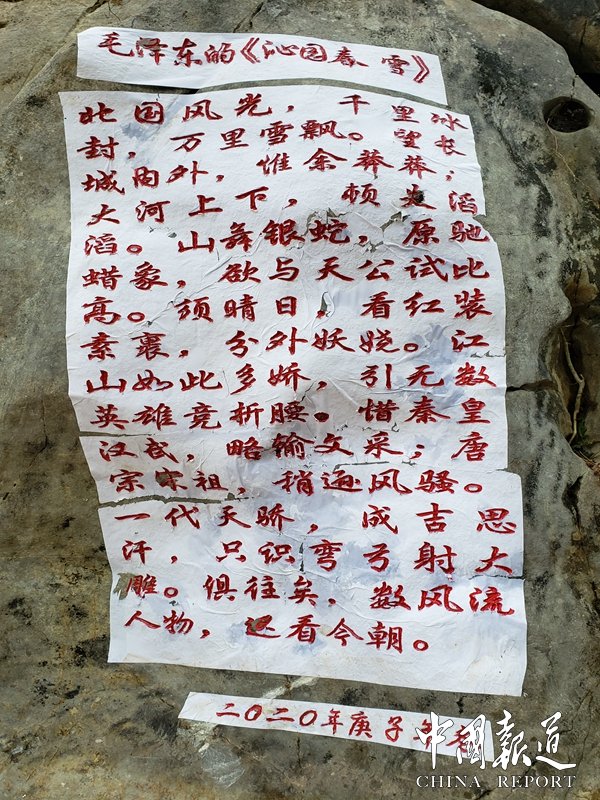 毛泽东的《沁园春 雪》
北国风光，千里冰
封，万里雪飘。望长
城内外，惟余莽莽，
大河上下，顿失滔
滔。山舞银蛇，原驰
蜡象，欲与天公试比
高。须晴日，看红装
素裹，分外妖娆。江
山如此多娇，引无数
英雄竞折腰。惜秦皇
汉武，略输文采；唐
宗宋祖，稍逊风骚。
一代天骄，成吉思
汗，只识弯弓射大
雕。俱往矣，数风流
人物，还看今朝。
二〇二〇年庚子
中國報道
CHINA REPORT